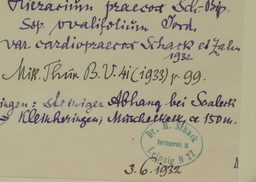 Hieracium praecox Sch.-Bip.
Ssp. ovalifolium Jord.
var. cardiopraecox Schack et Zahn
1932
Mitt. Thür. B. V. 41 (1933) p. 99.
steiniger Abhang bei Saaleck
Kleinheringen, Muschelkalk, ca 150 m.
Dr. H. Schack
Leipzig N 22
3.6.1932